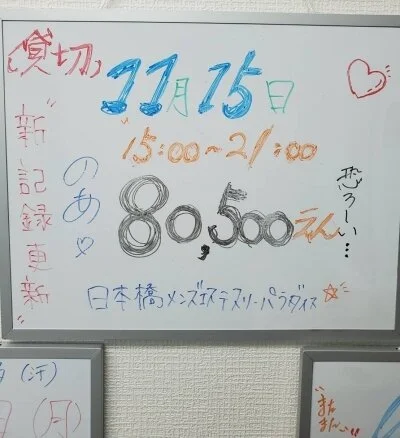 (貸切)
11月15日
"15:00~21:00
"新記録更新"
のあ♡
80,500えん
恐ろしい…
日本橋メンズエステスリーパラダイス☆
(汗)
(月)